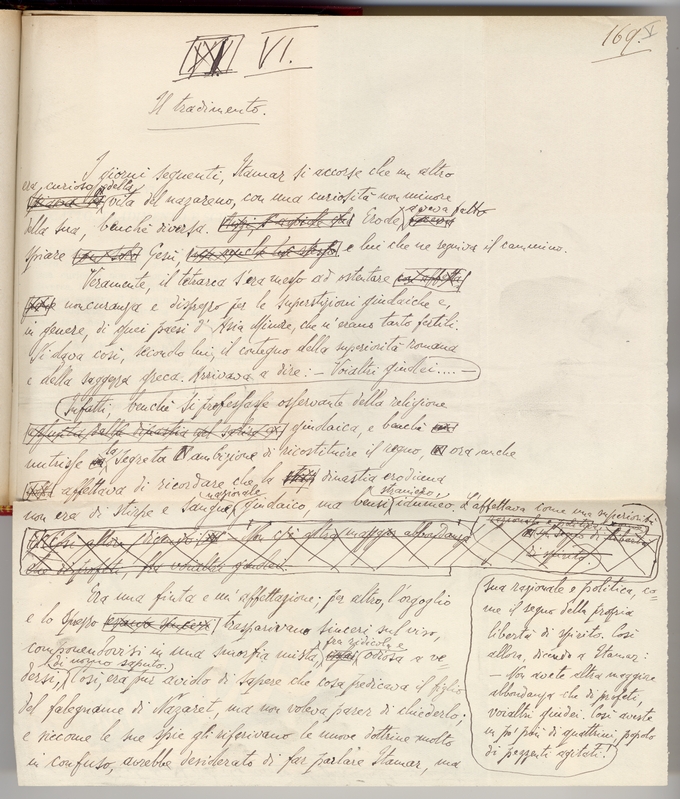 VI.
169.
Il tradimento.
I giorni seguenti, Itamar si accorse che un altro
era curioso della
vita del nazareno, con una curiosità non minore
della sua, benchè diversa. Erode aveva fatto
spiare Gesù, e lui che ne seguiva il cammino.
Veramente, il tetrarca s'era messo ad ostentare
noncuranza e dispregio per le superstizioni giudaiche e,
in genere, di quei paesi d'Asia Minore, che n'erano tanto fertili.
Si dava così, secondo lui, il contegno della superiorità romana
e della saggezza greca. Arrivava a dire: — Voialtri giudei.... —
Infatti, benchè si professasse osservante della religione
giudaica, e benchè
nutrisse la segreta ambizione di ricostituire il regno, ora anche
affettava di ricordare che la dinastia erodiana
non era di stirpe e sangue nazionale giudaico, ma bensì straniero, idumeo. L'affettava come una superiorità
sua razionale e politica, co-
me il segno della propria
libertà di spirito. Così
allora, dicendo a Itamar:
— Non avete altra maggiore
abbondanza che di profeti,
voialtri giudei. Così aveste
un po' più di quattrini, popolo
di pezzenti agitati!
Era una finta e un'affettazione; per altro, l'orgoglio
e lo sprezzo trasparivano sinceri sul viso,
componendovisi in una smorfia mista, fra ridicola e odiosa a ve-
dersi. Così, era pur avido di sapere che cosa predicava il figlio
del falegname di Nazaret, ma non voleva parer di chiederlo;
e siccome le sue spie gli riferivano le nuove dottrine molto
in confuso, avrebbe desiderato di far parlare Itamar, ma